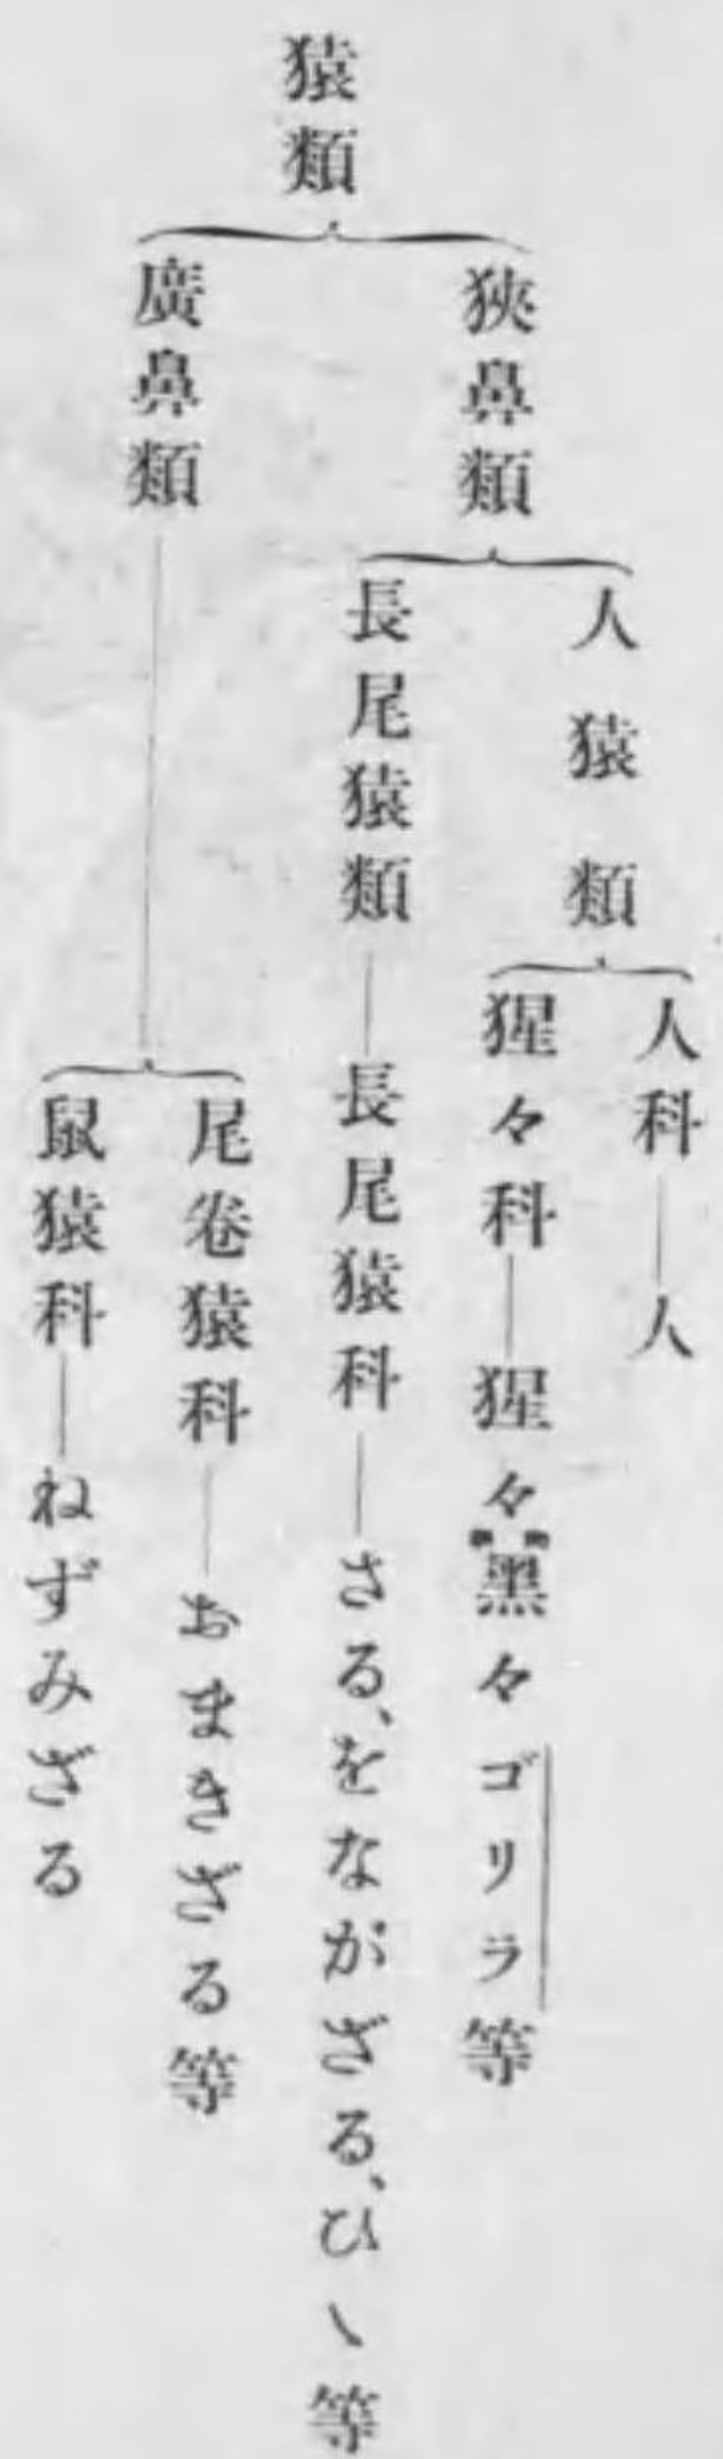 猿類
狹鼻類
人猿類
人科―人
猩々科―猩々黑々ゴリラ等
長尾猿類―長尾猿科―さる、をながざる、ひゝ等
廣鼻類
尾卷猿科―おまきざる等
鼠猿科―ねずみざる